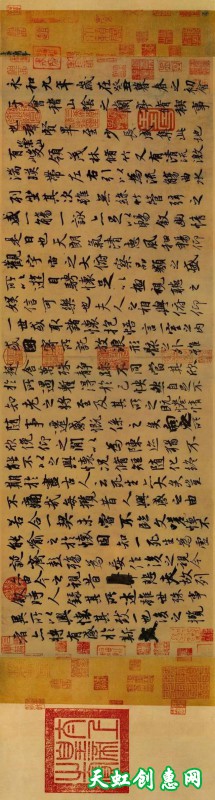 永和九年歲在癸丑暮春之初會
于會稽山陰之蘭亭脩稧事
也羣賢畢至少長咸集此地
有崇山峻領茂林脩竹又有清流激
湍暎帶左右引以為流觴曲水
列坐其次雖無絲竹管弦之
盛一觴一詠亦足以暢敘幽情
是日也天朗氣清惠風和暢仰
觀宇宙之大俯察品類之盛
所以遊目騁懷足以極視聽之
娛信可樂也夫人之相與俯仰
一世或取諸懷抱悟言一室之內
或因寄所託放浪形骸之外雖
趣舍萬殊靜躁不同當其欣
於所遇暫得於己怏然自足不
知老之將至及其所之既惓情
隨事遷感慨係之矣向之所
欣俛仰之閒以為陳迹猶不
能不以之興懷況脩短隨化終
期於盡古人云死生亦大矣豈
不痛哉每攬昔人興感之由
若合一契未嘗不臨文嗟悼不
能喻之於懷固知一死生為虛
誕齊彭殤為妄作後之視今
亦由今之視昔悲夫故列
敘時人錄其所述雖世殊事
異所以興懷其致一也後之攬
者亦將有感於斯文
天虹创惠网